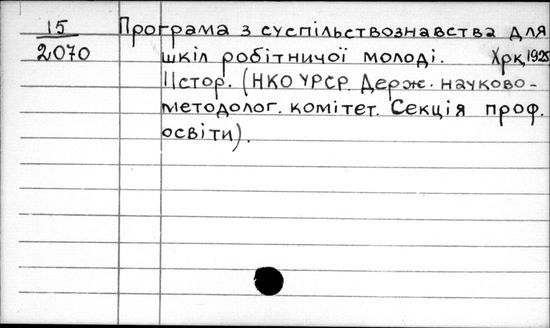 15
2070
Програма з суспільствознавства для
шкіл робітничої молоді. Хрк, 1925
11стор. (НКО УРСР. Держ. науково-
методолог. комітет. Секція проф.
освіти).